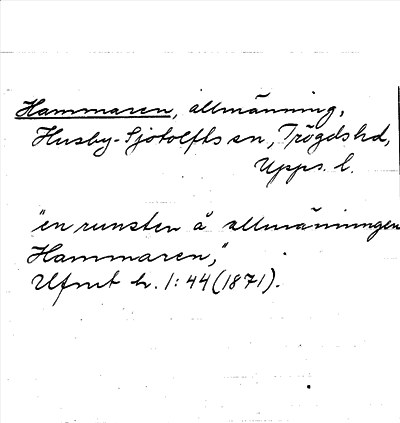 Hammaren, allmänning,
Husby-Sjutolfts sn, Trögds hd,
Upps. l.
"en runsten å allmänningen
Hammaren,"
Ufmt h. 1:44 (1871).